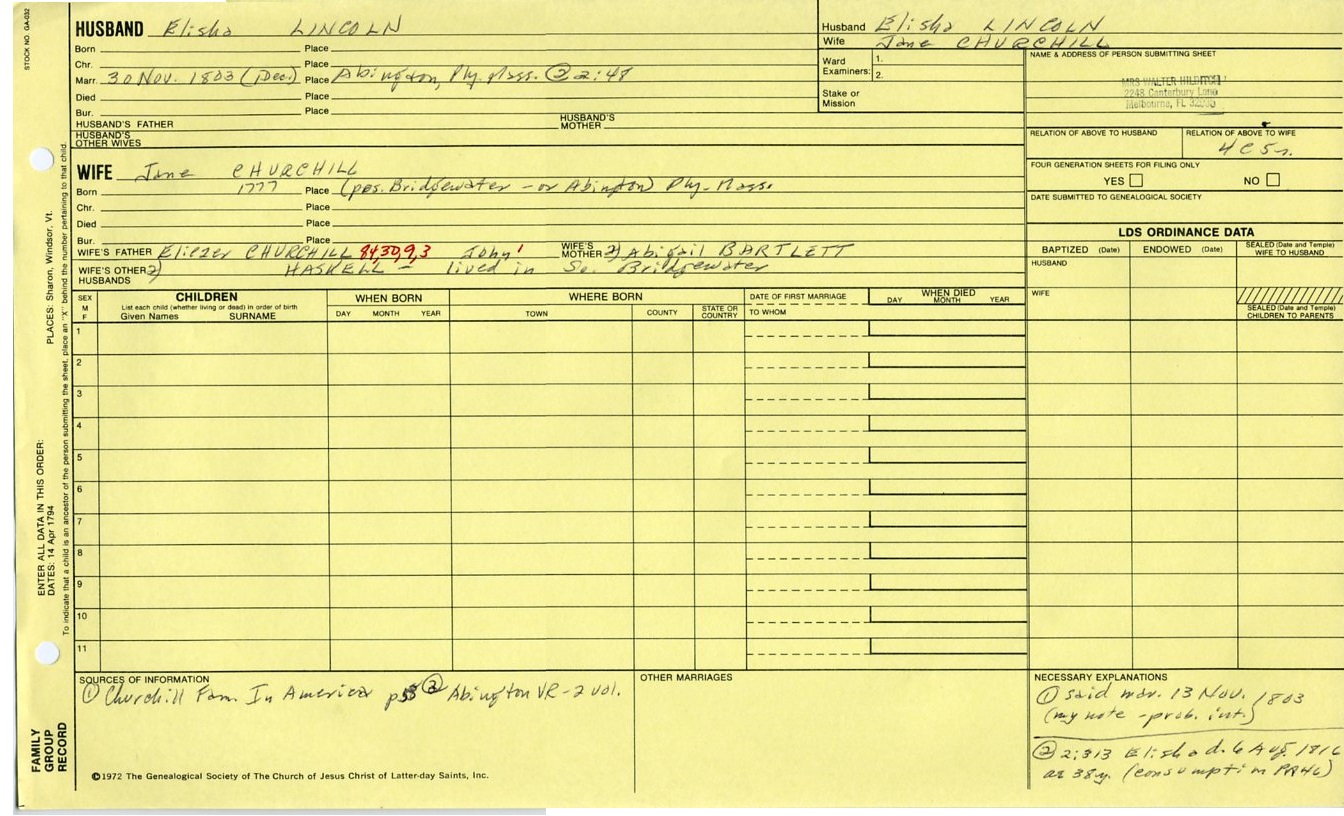 STOCK NO. GA-032
HUSBAND Elisha LINCOLN
Born Place
Chr. Place
Marr. 30 Nov. 1803 (Dec.) Place Abington, Ply. Mass. ② 2:48
Died Place
Bur. Place
HUSBAND'S FATHER HUSBAND'S MOTHER
HUSBAND'S OTHER WIVES
WIFE Jane CHURCHILL
Born 1777 Place (pos. Bridgewater - or Abington) Ply. Mass.
Chr. Place
Died Place
Bur. Place
WIFE'S FATHER Eliezer CHURCHILL 843D,9,3 John' WIFE'S MOTHER 2) Abigail BARTLETT
WIFE'S OTHER HUSBANDS 2) HASKELL - lived in So. Bridgewater
Husband Elisha LINCOLN
Wife Jane CHURCHILL
Ward Examiners: 1.
2.
Stake or Mission
NAME & ADDRESS OF PERSON SUBMITTING SHEET
MRS WALTER
2248 Canterbury Lane
Melbourne, FL
RELATION OF ABOVE TO HUSBAND RELATION OF ABOVE TO WIFE
4C5r.
FOUR GENERATION SHEETS FOR FILING ONLY
YES NO
DATE SUBMITTED TO GENEALOGICAL SOCIETY
LDS ORDINANCE DATA
BAPTIZED (Date) ENDOWED (Date) SEALED (Date and Temple) WIFE TO HUSBAND
HUSBAND
WIFE
SEALED (Date and Temple) CHILDREN TO PARENTS
SEX M F
CHILDREN
List each child (whether living or dead) in order of birth
Given Names SURNAME
WHEN BORN
DAY MONTH YEAR
WHERE BORN
TOWN COUNTY STATE OR COUNTRY
DATE OF FIRST MARRIAGE
TO WHOM
WHEN DIED
DAY MONTH YEAR
1
2
3
4
5
6
7
8
9
10
11
PLACES: Sharon, Windsor, Vt.
ENTER ALL DATA IN THIS ORDER:
DATES: 14 Apr 1794
To indicate that a child is an ancestor of the person submitting the sheet, place an "X" behind the number pertaining to that child.
FAMILY GROUP RECORD
SOURCES OF INFORMATION
① Churchill Fam. In America p58 ② Abington VR - 2 vol.
©1972 The Genealogical Society of The Church of Jesus Christ of Latter-day Saints, Inc.
OTHER MARRIAGES
NECESSARY EXPLANATIONS
① said mar. 13 Nov. 1803
(my note - prob. int.)
② 2:313 Elisha d. 6 Aug. 1816
ae 38y. (consumption PR46)